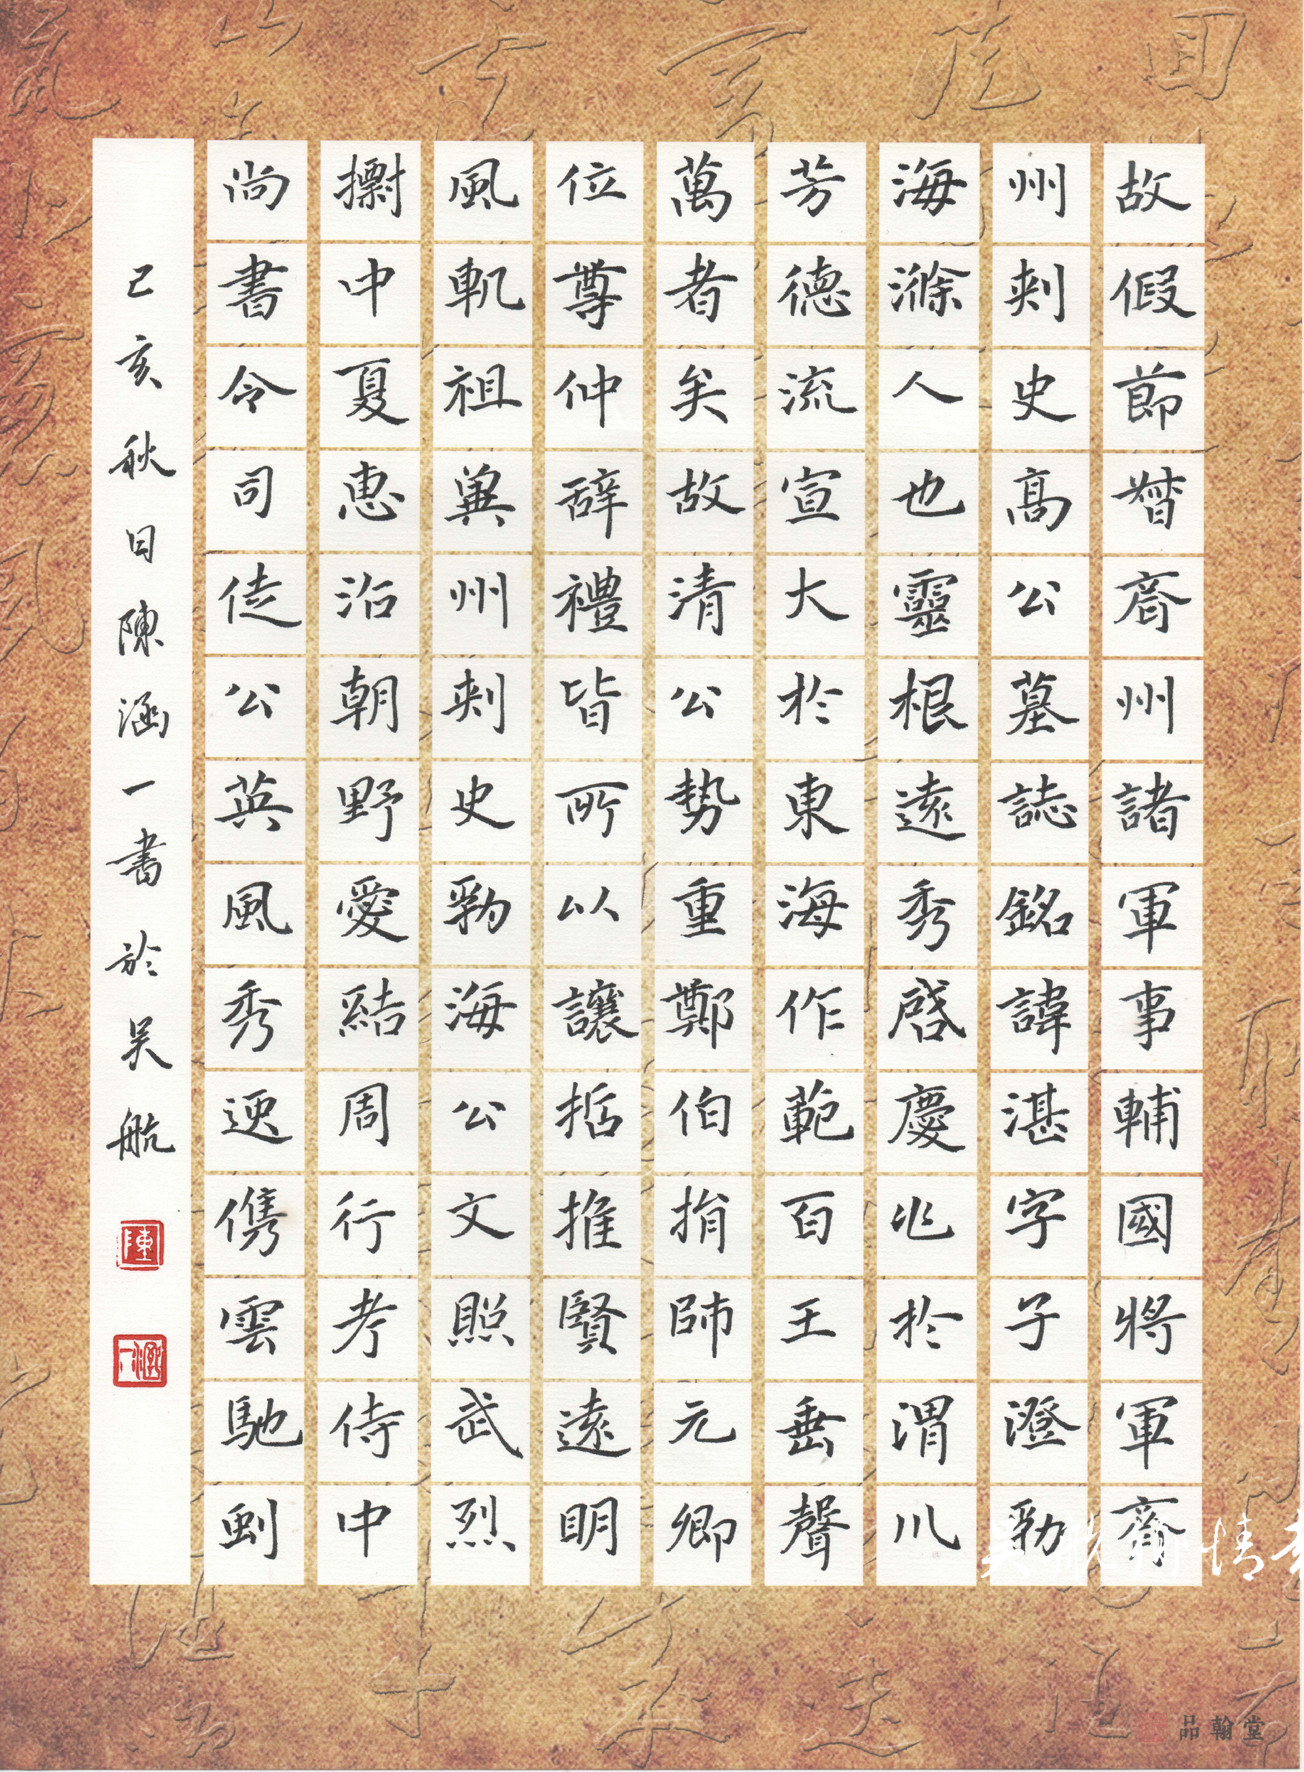 故假節督齊州諸軍事輔國將軍齊
州刺史高公墓誌銘諱湛字子澄勃
海滌人也靈根遠秀啓慶兆於渭川
芳德流宣大於東海作範百王垂聲
萬者矣故清公勢重鄭伯捐師元卿
位尊仲辭禮皆所以讓括推賢遠明
風軌祖冀州刺史勃海公文照武烈
摽中夏惠沿朝野愛結周行考侍中
尚書令司徒公英風秀逸儁雲馳劍
己亥秋日陳涵一書於吴航
陳
涵一
品翰堂